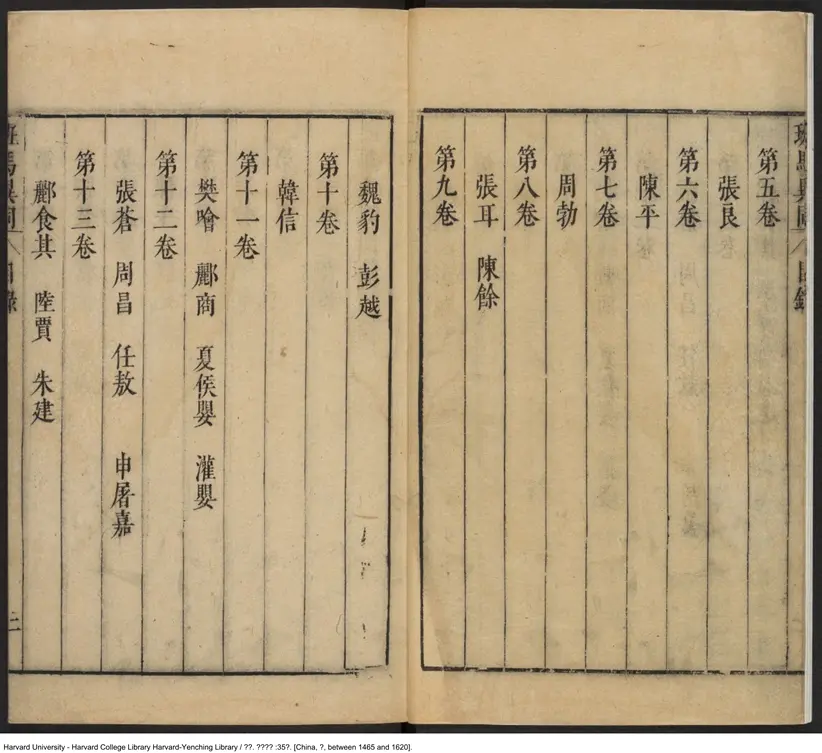 班馬異同 目錄
第五卷
張良
第六卷
陳平
第七卷
周勃
第八卷
張耳 陳餘
第九卷
魏豹 彭越
第十卷
韓信
第十一卷
樊噲 酈商 夏侯嬰 灌嬰
第十二卷
張蒼 周昌 任敖 申屠嘉
第十三卷
酈食其 陸賈 朱建
班馬異同 目錄
Harvard University - Harvard College Library Harvard-Yenching Library / ??. ???? :35?. [China, ?, between 1465 and 1620].